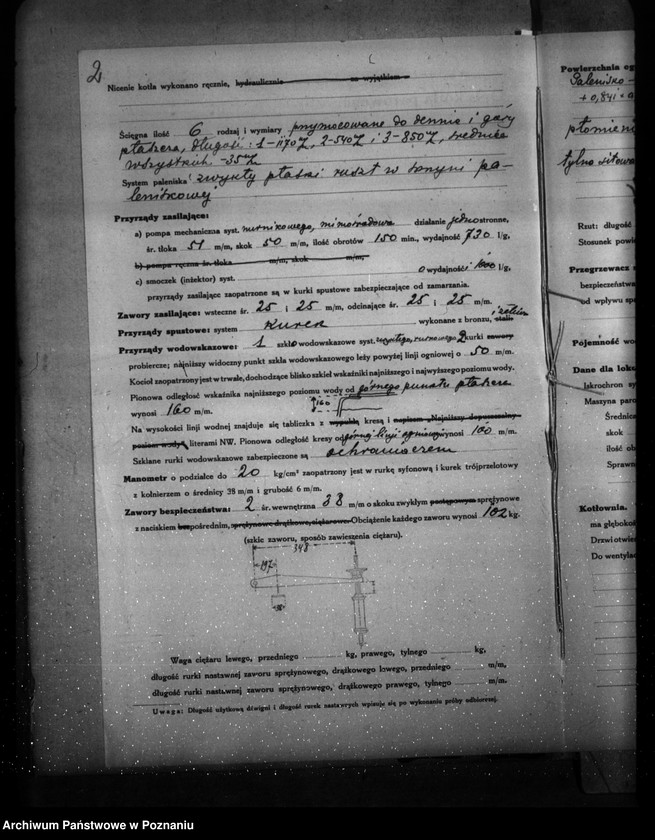 2
Nicenie kotła wykonano ręcznie, hydraulicznie za wyjątkiem
Ścięgna ilość 6 rodzaj i wymiary przymocowane do dennic i góry
płaszcza, długość: 1-1170 2-540 i 3-850 średnica
wszystkich -35
System paleniska zwykły płaski ruszt w skrzyni pa-
leniskowej
Przyrządy zasilające:
a) pompa mechaniczna syst. nurnikowego, mimośrodowa działanie jednostronne,
śr. tłoka 51 m/m, skok 50 m/m, ilość obrotów 150 min., wydajność 730 l/g,
b) pompa ręczna śr. tłoka m/m, skok m/m,
c) smoczek (inżektor) syst. o wydajności 600 l/g,
przyrządy zasilające zaopatrzone są w kurki spustowe zabezpieczające od zamarzania.
Zawory zasilające: wsteczne śr. 25 i 25 m/m, odcinające śr. 25 i 25 m/m.
Przyrządy spustowe: system kurek wykonane z bronzu, stali
Przyrządy wodowskazowe: 1 szkło wodowskazowe syst. 2 kurki zawory
probiercze; najniższy widoczny punkt szkła wodowskazowego leży powyżej linji ogniowej o 50 m/m.
Kocioł zaopatrzony jest w trwałe, dochodzące blisko szkieł wskaźniki najniższego i najwyższego poziomu wody.
Pionowa odległość wskaźnika najniższego poziomu wody od górnego punktu płaszcza
wynosi 160 m/m.
160
Na wysokości linji wodnej znajduje się tabliczka z wypukłą kresą i napisem „Najniższy dopuszczalny
poziom wody" literami NW. Pionowa odległość kresy od górnej linji ogniowej wynosi 100 m/m.
Szklane rurki wodowskazowe zabezpieczone są ochraniaczem
Manometr o podziałce do 20 kg/cm² zaopatrzony jest w rurkę syfonową i kurek trójprzelotowy
z kołnierzem o średnicy 38 m/m i grubość 6 m/m.
Zawory bezpieczeństwa: 2 śr. wewnętrzna 38 m/m o skoku zwykłym postępowym sprężynowe
z naciskiem bezpośrednim, sprężynowe drążkowe, ciężarowe. Obciążenie każdego zaworu wynosi 102 kg.
(szkic zaworu, sposób zawieszenia ciężaru).
348
197
Waga ciężaru lewego, przedniego kg, prawego, tylnego kg,
długość rurki nastawnej zaworu sprężynowego, drążkowego lewego, przedniego m/m,
długość rurki nastawnej zaworu sprężynowego, drążkowego prawego, tylnego m/m.
Uwaga: Długość użytkową dźwigni i długość rurek nastawnych wpisuje się po wykonaniu próby odbiorczej.
Powierzchnia og
Palenisko -
+0,841
płomieni
tylno sitowa
Rzut: długość
Stosunek powi
Przegrzewacz s
bezpieczeństwa
od wpływu sp
Pojemność wo
Dane dla loku
Iskrochron sy
Maszyna paro
Średnica
skok
ilość ob
Sprawn
Kotłownia.
ma głęboko
Drzwi otwie
Do wentylac
Archiwum Państwowe w Poznaniu